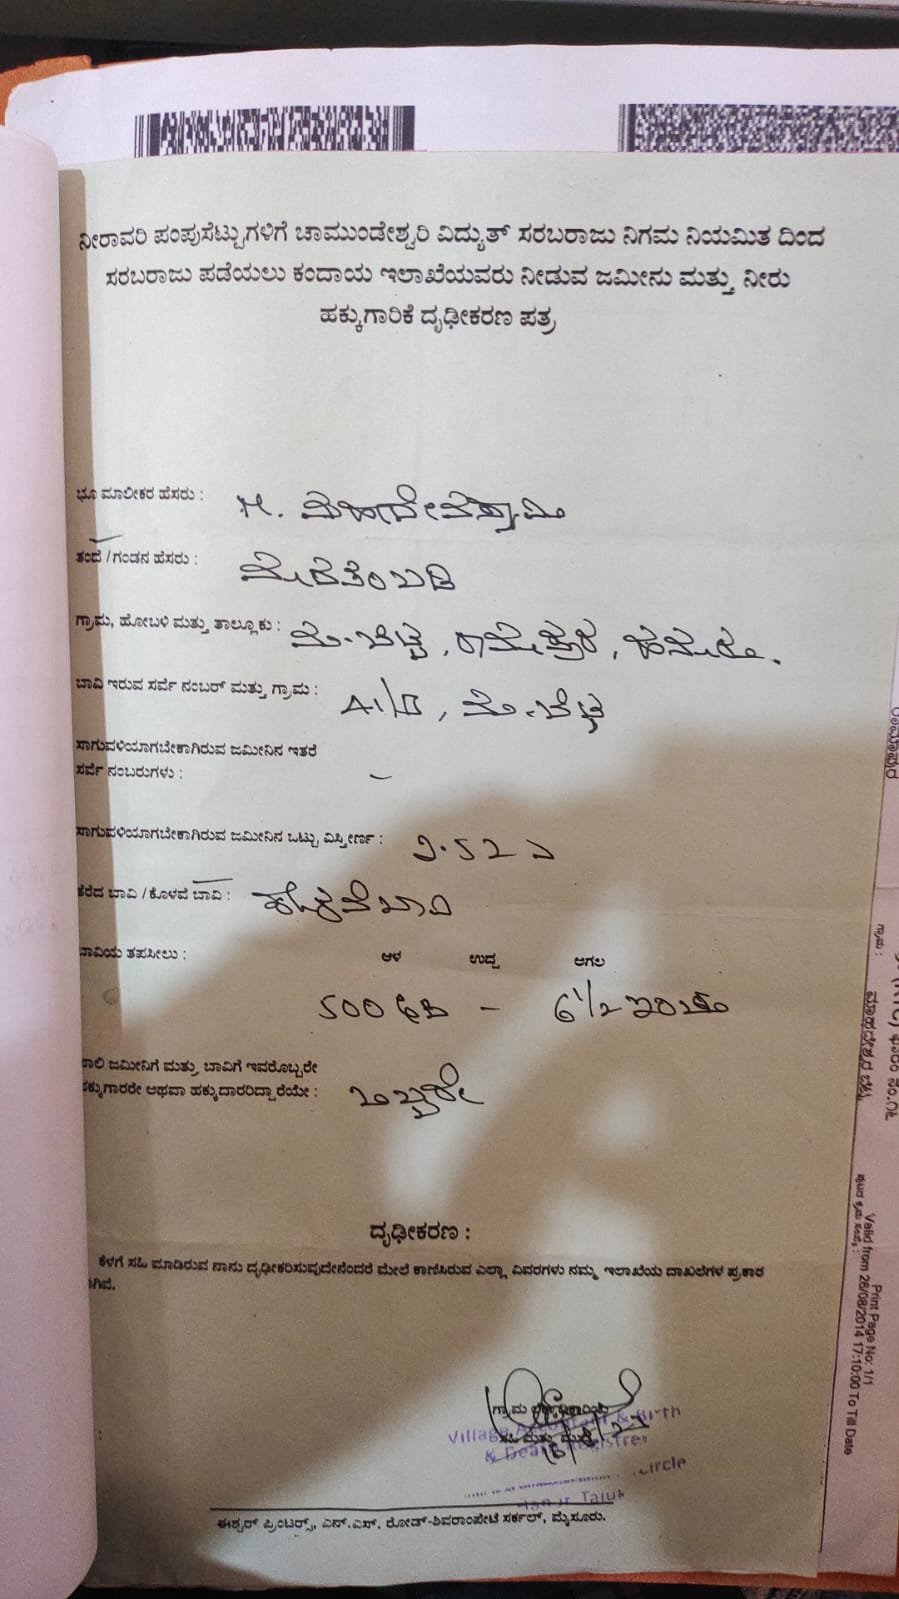 ನೀರಾವರಿ ಪಂಪುಸೆಟ್ಟುಗಳಿಗೆ ಚಾಮುಂಡೇಶ್ವರಿ ವಿದ್ಯುತ್ ಸರಬರಾಜು ನಿಗಮ ನಿಯಮಿತ ದಿಂದ
ಸರಬರಾಜು ಪಡೆಯಲು ಕಂದಾಯ ಇಲಾಖೆಯವರು ನೀಡುವ ಜಮೀನು ಮತ್ತು ನೀರು
ಹಕ್ಕುಗಾರಿಕೆ ದೃಢೀಕರಣ ಪತ್ರ
ಭೂ ಮಾಲೀಕರ ಹೆಸರು : M. ಮಹಾದೇವಸ್ವಾಮಿ
ತಂದೆ / ಗಂಡನ ಹೆಸರು :
ಗ್ರಾಮ, ಹೋಬಳಿ ಮತ್ತು ತಾಲ್ಲೂಕು : ಮ.ಬೆಟ್ಟ, ರಾಮಾಪುರ, ಹನೂರು.
ಬಾವಿ ಇರುವ ಸರ್ವೆ ನಂಬರ್ ಮತ್ತು ಗ್ರಾಮ : ಮ.ಬೆಟ್ಟ
ಸಾಗುವಳಿಯಾಗಬೇಕಾಗಿರುವ ಜಮೀನಿನ ಇತರೆ
ಸರ್ವೆ ನಂಬರುಗಳು : –
ಸಾಗುವಳಿಯಾಗಬೇಕಾಗಿರುವ ಜಮೀನಿನ ಒಟ್ಟು ವಿಸ್ತೀರ್ಣ :
ತೆರೆದ ಬಾವಿ / ಕೊಳವೆ ಬಾವಿ : ಕೊಳವೆಬಾವಿ
ಬಾವಿಯ ತಪಸೀಲು : ಆಳ ಉದ್ದ ಅಗಲ
500 ಅಡಿ – 6 1/2 ಇಂಚು
ಖಾಲಿ ಜಮೀನಿಗೆ ಮತ್ತು ಬಾವಿಗೆ ಇವರೊಬ್ಬರೇ
ಹಕ್ಕುಗಾರರೇ ಅಥವಾ ಹಕ್ಕುದಾರರಿದ್ದಾರೆಯೇ : ಒಬ್ಬರೇ
ದೃಢೀಕರಣ :
ಕೆಳಗೆ ಸಹಿ ಮಾಡಿರುವ ನಾನು ದೃಢೀಕರಿಸುವುದೇನೆಂದರೆ ಮೇಲೆ ಕಾಣಿಸಿರುವ ಎಲ್ಲಾ ವಿವರಗಳು ನಮ್ಮ ಇಲಾಖೆಯ ದಾಖಲೆಗಳ ಪ್ರಕಾರ
ಗ್ರಾಮ
Village & Birth
& Death
Circle
Taluk
ಈಶ್ವರ್ ಪ್ರಿಂಟರ್ಸ್, ಎನ್.ಎಸ್. ರೋಡ್-ಶಿವರಾಂಪೇಟೆ ಸರ್ಕಲ್, ಮೈಸೂರು.
ರಾಮಾಪುರ
ಗ್ರಾಮ :
ಮಾಹದೇಶ್ವರ ಬೆಟ್ಟ
Print Page No: 1/1
Valid from 26/08/2014 17:10:00 To Till Date